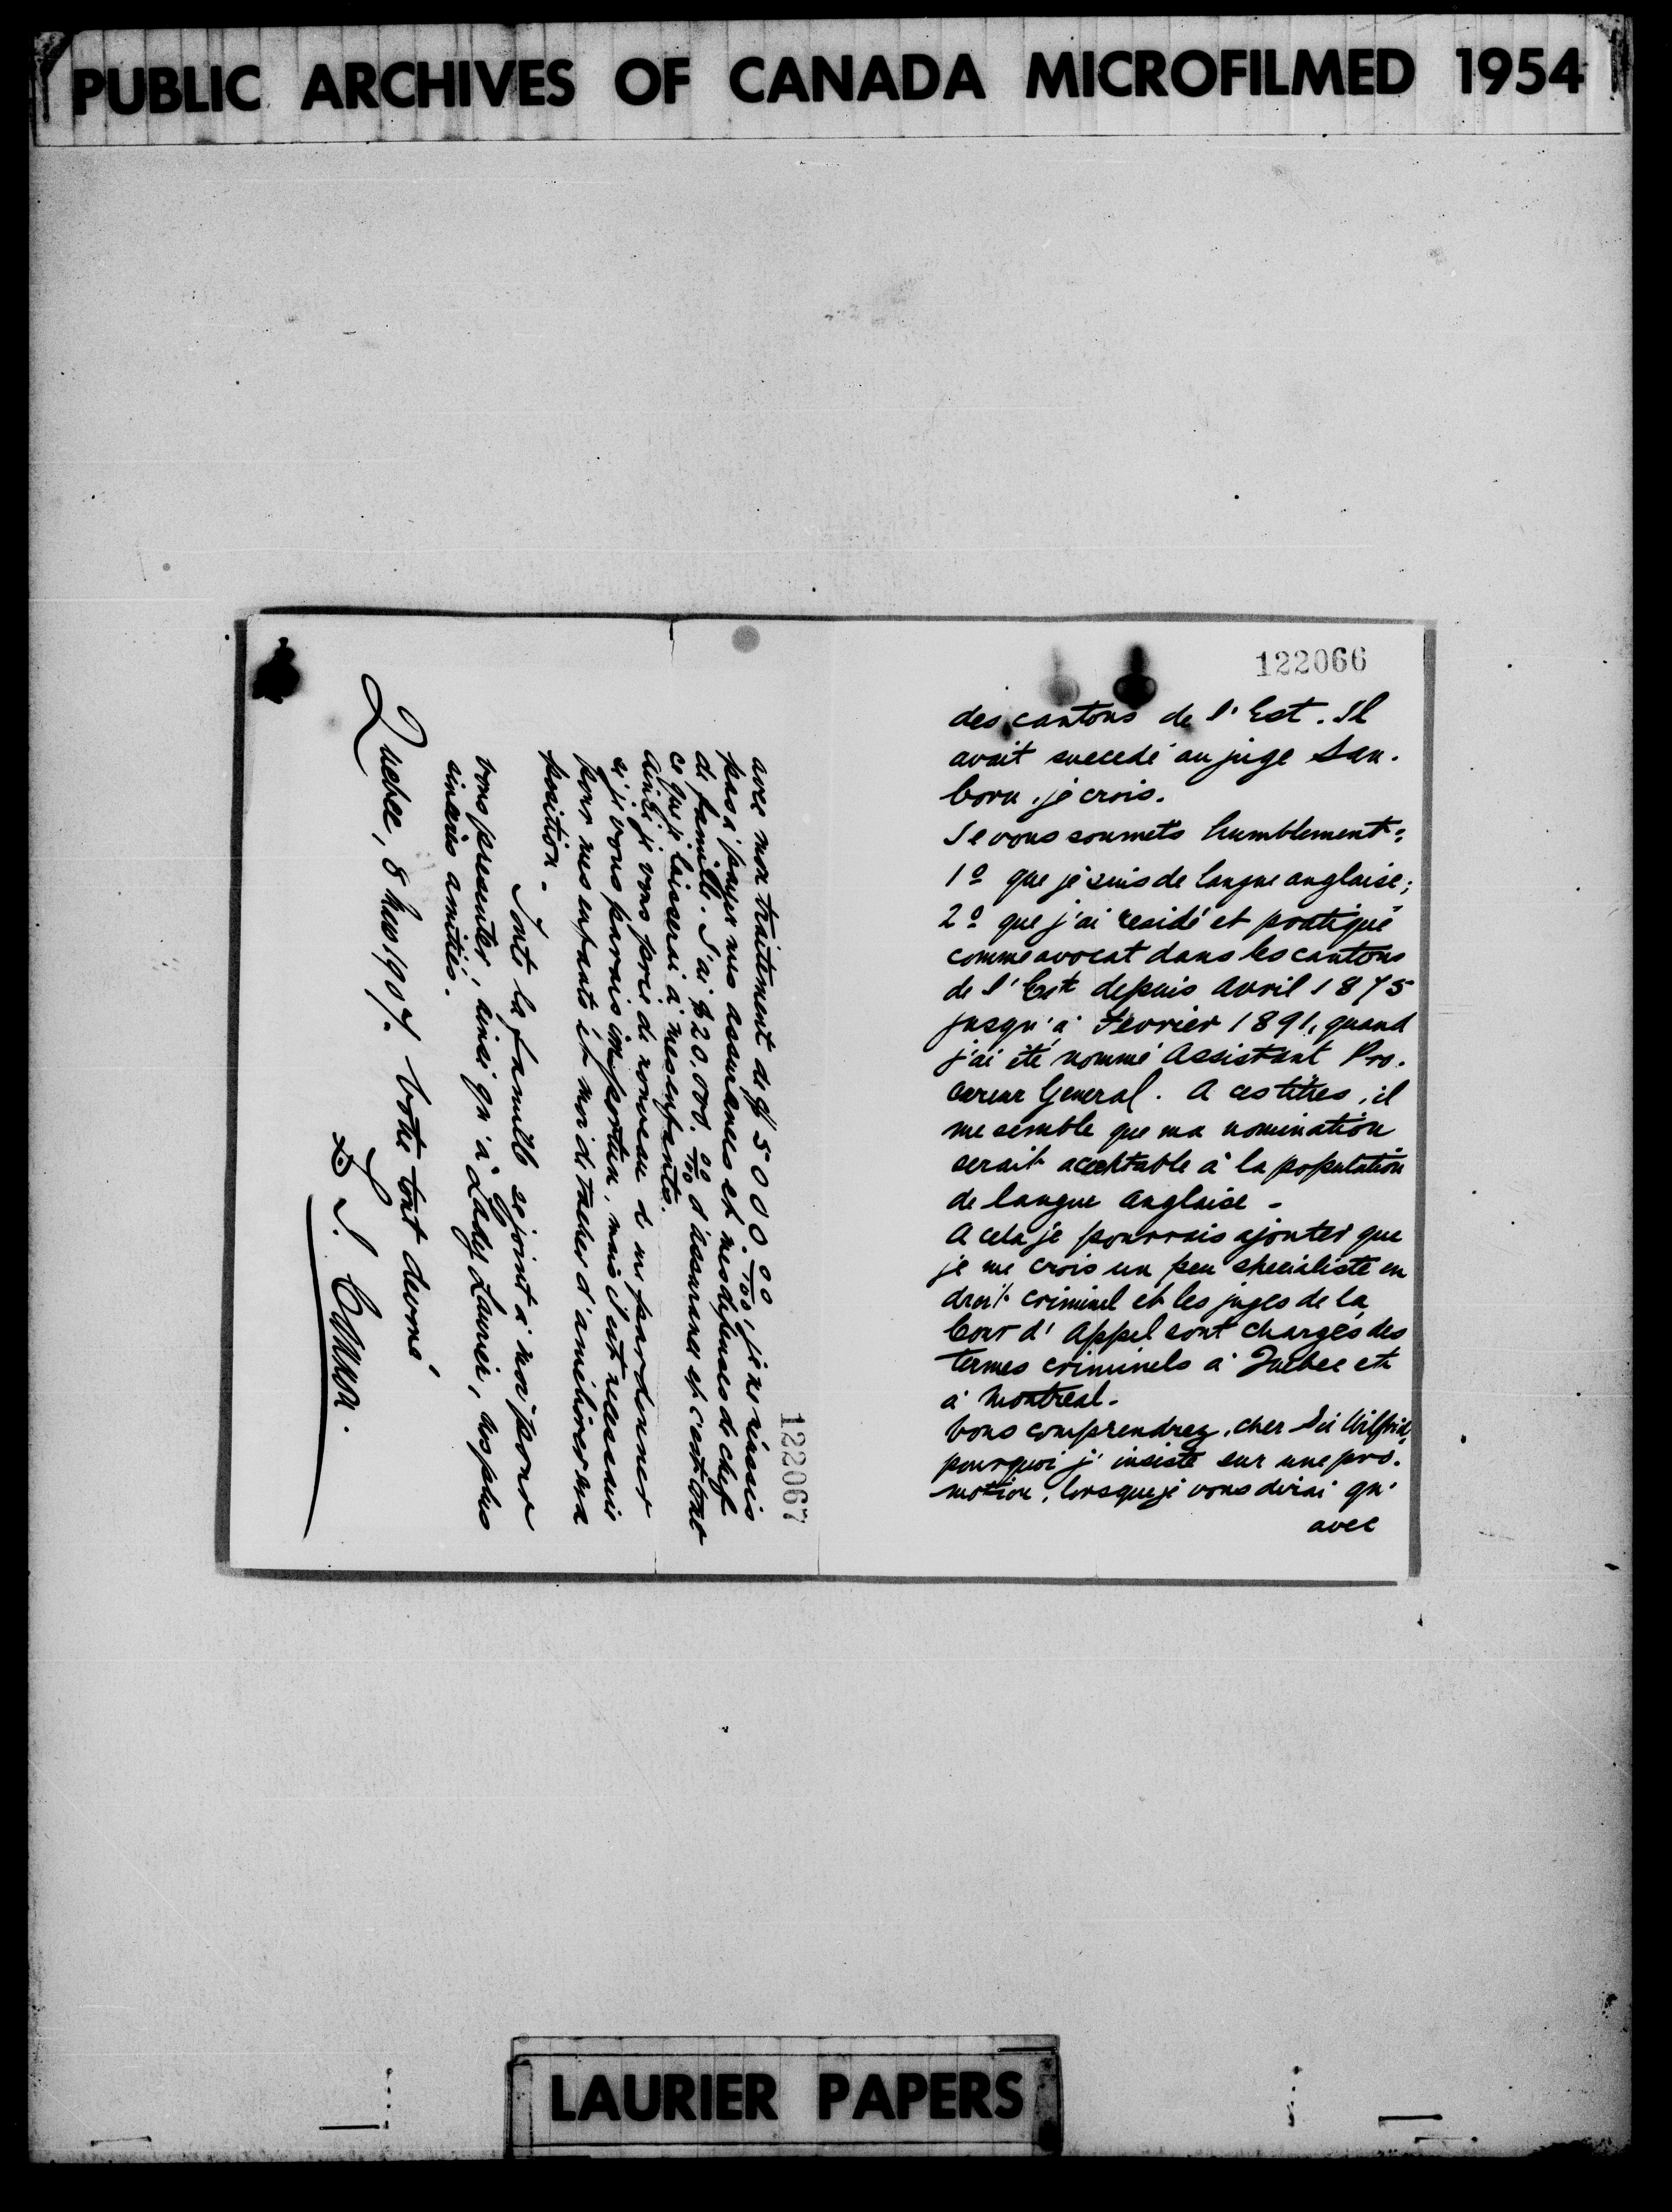 PUBLIC ARCHIVES OF CANADA MICROFILMED 1954
122066
des cantons de l'Est. Il
avait succedé au juge San-
born, je crois.
Je vous soumets humblement:
1º que je suis de langue anglaise;
2º que j'ai residé et pratiqué
comme avocat dans les cantons
de l'Est depuis Avril 1875
jusqu'à Fevrier 1891, quand
j'ai été nommé Assistant Pro-
cureur General. A ces titres, il
me semble que ma nomination
serait acceptable à la population
de langue Anglaise -
A cela je pourrais ajouter que
je me crois un peu specialiste en
droit criminel et les juges de la
Cour d'Appel sont chargés des
termes criminels à Quebec et
à Montreal.
Vous comprendrez, cher Sir Wilfrid,
pourquoi j'insiste sur une pro-
motion, lorsque je vous dirai qu'
avec
122067
avec mon traitement de $5000.00/100, je ne réussis
pas à payer mes assurances et mes depenses de chef
de famille. J'ai $20.000.00/100 d'assurance et c'est tout
ce que je laisserai à mes enfants.
Ainsi je vous prie de nouveau de me pardonner
si je vous parais importun, mais il est necessaire
pour mes enfants et moi de tacher d'améliorer ma
position -
Toute la famille se joint à moi pour
vous presenter, ainsi qu'à Lady Laurier, nos plus
sincères amitiés.
Votre tout devoué
Quebec, 8 1907.
LAURIER PAPERS